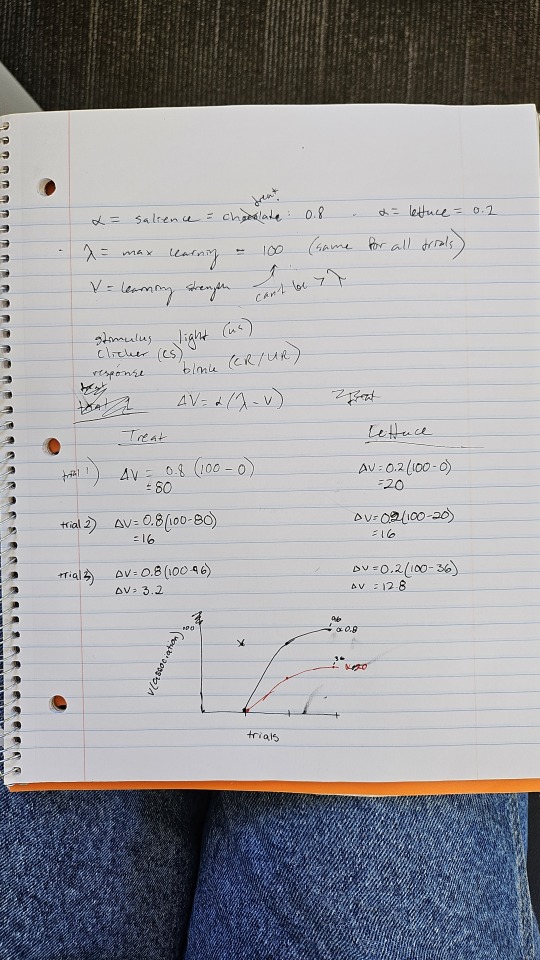 treat
α = salience = chocolate: 0.8 . α = lettuce = 0.2
λ = max learning = 100 (same for all trials)
V = learning strength can't be > λ
stimulus light (us)
clicker (CS)
response blink (CR/UR)
ΔV = α(λ - V)
Treat Lettuce
trial 1) ΔV = 0.8 (100 - 0) ΔV = 0.2(100-0)
= 80 = 20
trial 2) ΔV = 0.8(100-80) ΔV = 0.2(100-20)
= 16 = 16
trial 3) ΔV = 0.8(100-96) ΔV = 0.2(100-36)
ΔV = 3.2 ΔV = 12.8
100 96
α 0.8
V(association) 36
trials